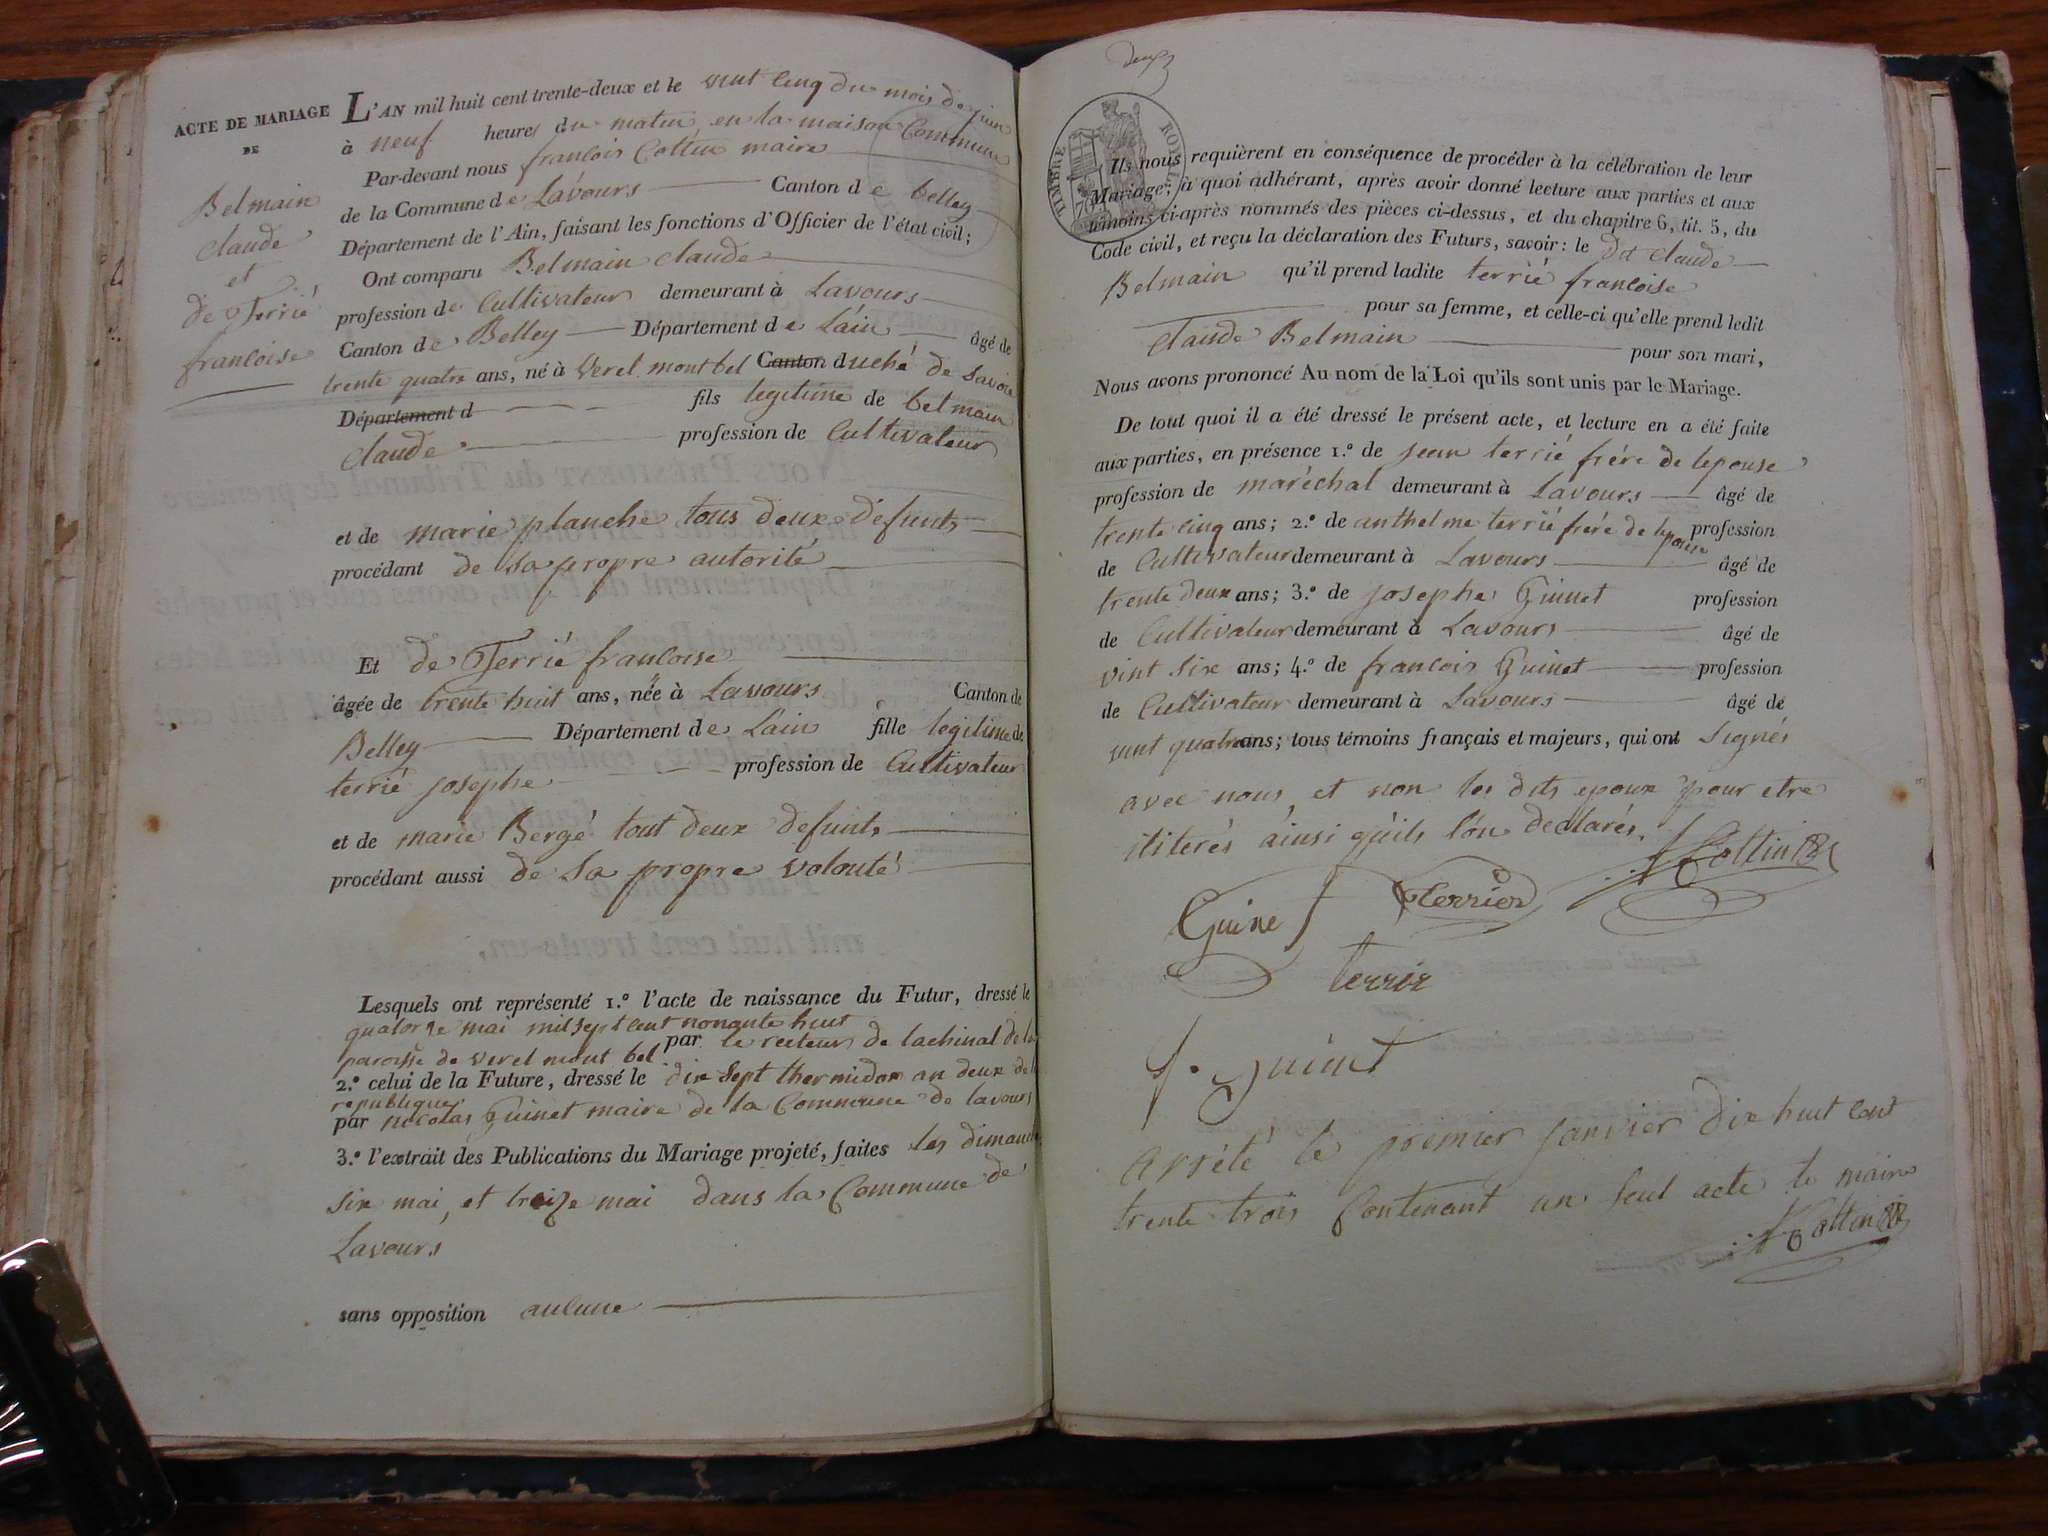 ACTE DE MARIAGE
DE
Belmain
claude
et
de Terrié
francoise
L'AN mil huit cent trente-deux et le vint cinq du mois de juin
à neuf heures du matin en la maison Commune
Par-devant nous francois Cottin maire
de la Commune de Lavours Canton de belley
Département de l'Ain, faisant les fonctions d'Officier de l'état civil;
Ont comparu Belmain claude
profession de Cultivateur demeurant à Lavours
Canton de Belley Département de Lain âgé de
trente quatre ans, né à Verel montbel Canton duché de Savoie
Département d fils legitime de belmain
claude profession de Cultivateur
et de marie planche tous deux defunts
procédant de sa propre autorité
Et de Terrié francoise
âgée de trente huit ans, née à Lavours Canton de
Belley Département de Lain fille legitime de
terrié josephe profession de Cultivateur
et de marie Bergé tout deux defunts
procédant aussi de sa propre volonté
Lesquels ont représenté 1.º l'acte de naissance du Futur, dressé le
quatorze mai mil sept cent nonante huit
paroisse de verel mont bel par le recteur de lachinal de la
2.º celui de la Future, dressé le dix sept thermidor an deux de l
republique
par nicolas Guinet maire de la Commune de lavours
3.º l'extrait des Publications du Mariage projeté, faites les dimanche
six mai, et treize mai dans la Commune de
Lavours
sans opposition aucune
deux
TIMBRE ROYAL
Ils nous requièrent en conséquence de procéder à la célébration de leur
Mariage; à quoi adhérant, après avoir donné lecture aux parties et aux
témoins ci-après nommés des pièces ci-dessus, et du chapitre 6, tit. 5, du
Code civil, et reçu la déclaration des Futurs, savoir: le dit claude
Belmain qu'il prend ladite terrié francoise
pour sa femme, et celle-ci qu'elle prend ledit
claude Belmain pour son mari,
Nous avons prononcé Au nom de la Loi qu'ils sont unis par le Mariage.
De tout quoi il a été dressé le présent acte, et lecture en a été faite
aux parties, en présence 1.º de jean terrié frére de lepouse
profession de maréchal demeurant à Lavours âgé de
trente cinq ans; 2.º de anthelme terrié frére de lepouse profession
de Cultivateur demeurant à Lavours âgé de
trente deux ans; 3.º de josephe Guinet profession
de Cultivateur demeurant à Lavours âgé de
vint six ans; 4.º de francois Guinet profession
de Cultivateur demeurant à Lavours âgé de
vint quatre ans; tous témoins français et majeurs, qui ont Signés
avec nous, et non les dits epoux pour etre
ititerés ainsi qu'ils l'on declarés.
Cottin
Guinet Terrier
terrier
f. guinet
arrété le premier janvier dix huit cent
trente trois Contenant un seul acte le maire
Cottin